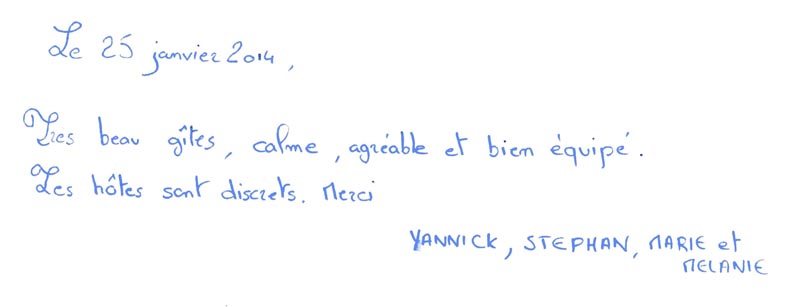 Le 25 janvier 2014,
Très beau gîtes, calme, agréable et bien équipé.
Les hôtes sont discrets. Merci
YANNICK, STEPHAN, MARIE et
MELANIE